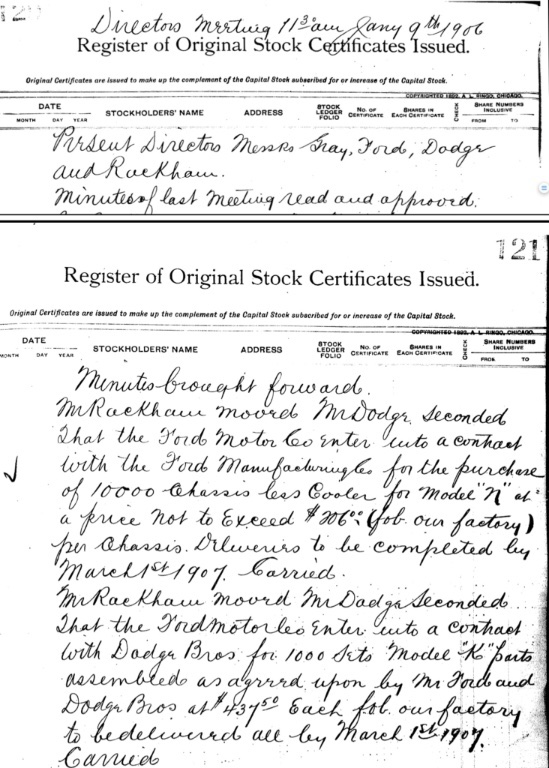 Directors Meeting 11 30 am Jany 9th 1906
Register of Original Stock Certificates Issued.
Original Certificates are issued to make up the complement of the Capital Stock subscribed for or increase of the Capital Stock.
COPYRIGHTED 1892, A. L. RINGO, CHICAGO.
DATE STOCKHOLDERS' NAME ADDRESS STOCK LEDGER FOLIO No. OF CERTIFICATE SHARES IN EACH CERTIFICATE CHECK SHARE NUMBERS INCLUSIVE
MONTH DAY YEAR FROM TO
Present Directors Messrs Gray, Ford, Dodge
and Rackham.
Minutes of last Meeting read and approved.
121
Register of Original Stock Certificates Issued.
Original Certificates are issued to make up the complement of the Capital Stock subscribed for or increase of the Capital Stock.
COPYRIGHTED 1892, A. L. RINGO, CHICAGO.
DATE STOCKHOLDERS' NAME ADDRESS STOCK LEDGER FOLIO No. OF CERTIFICATE SHARES IN EACH CERTIFICATE CHECK SHARE NUMBERS INCLUSIVE
MONTH DAY YEAR FROM TO
Minutes brought forward.
Mr Rackham moved Mr Dodge seconded
That the Ford Motor Co Enter into a contract
with the Ford Manufacturing Co for the purchase
of 10000 Chassis less Cooler for Model "N" at
a price Not to Exceed $206.00 (fob. our factory)
per Chassis. Deliveries to be completed by
March 1st 1907. Carried.
Mr Rackham moved Mr Dodge seconded
That the Ford Motor Co Enter into a contract
with Dodge Bros. for 1000 Sets Model "K" parts
assembled as agreed upon by Mr Ford and
Dodge Bros at $437 50 Each fob. our factory
to be delivered all by March 1st 1907.
Carried